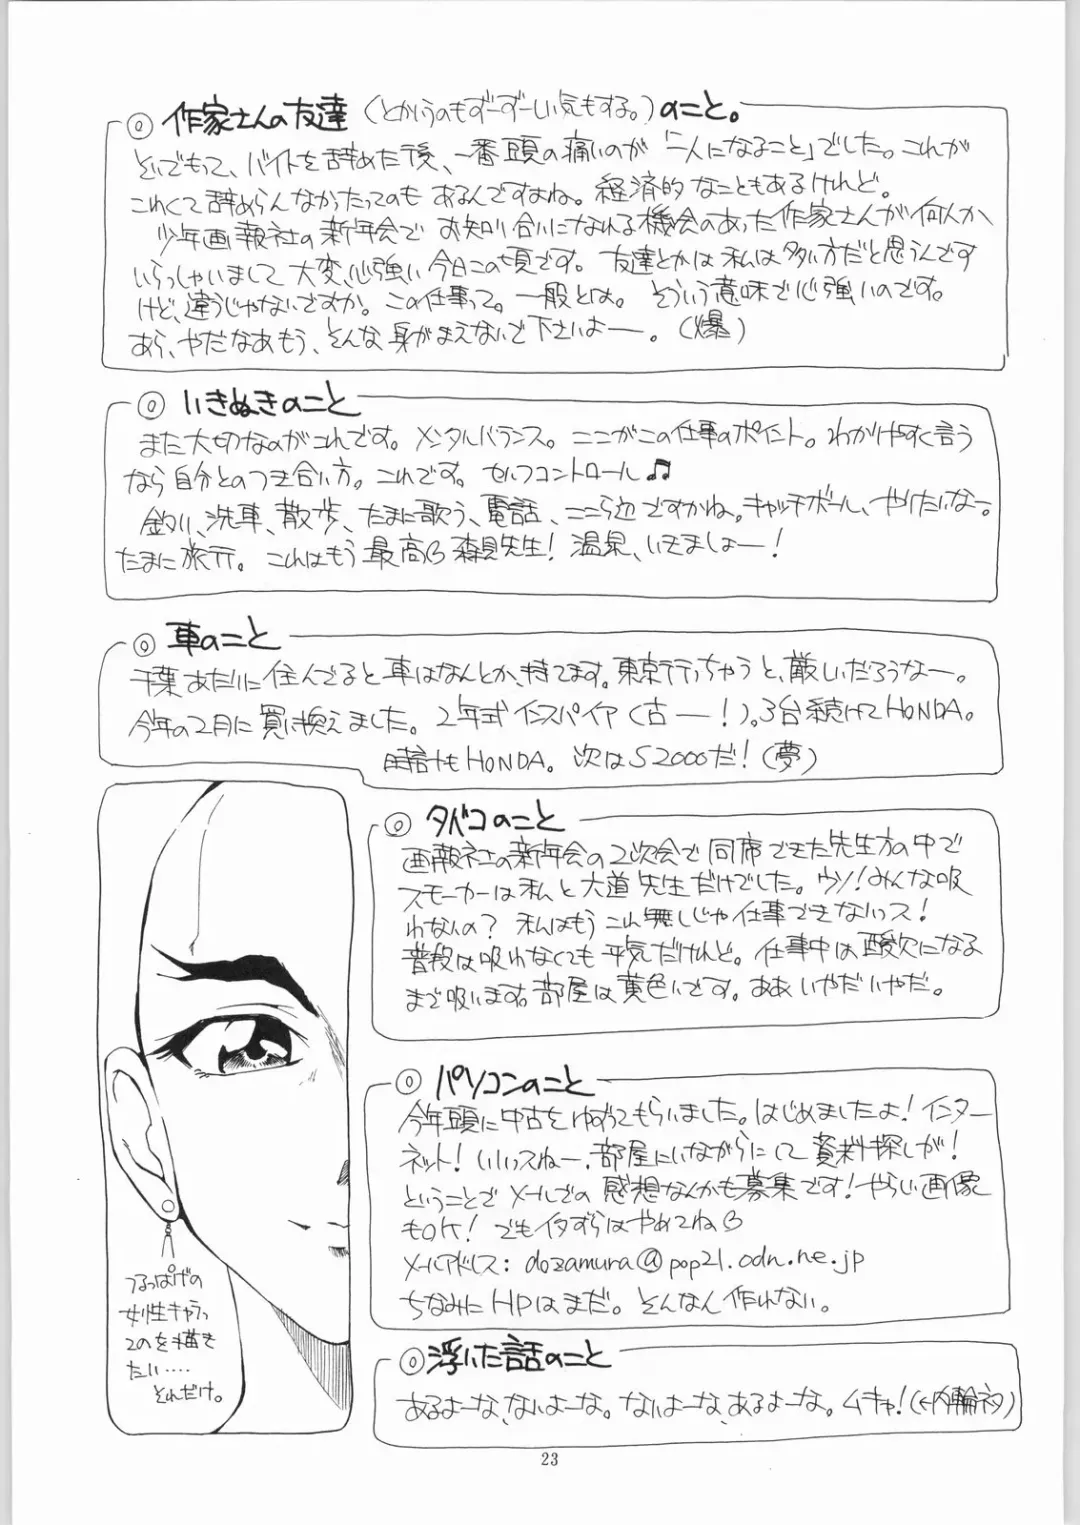 ◎ 作家さんの友達（とかいうのもずーずーしい気もする。）のこと。
そいでもって、バイトを辞めた後、一番頭の痛いのが「一人になること」でした。これが
こわくて辞めらんなかったってのもあるんですよね。経済的なこともあるけれど。
少年画報社の新年会でお知り合いになれる機会のあった作家さんが何人か
いらっしゃいまして大変、心強い今日この頃です。友達とかは私は多い方だと思うんです
けど、違うじゃないですか。この仕事って。一般とは。そういう意味で心強いのです。
あら、やだなあもう、そんな身がまえないで下さいよー。（爆）
◎ いきぬきのこと
また大切なのがこれです。メンタルバランス。ここがこの仕事のポイント。わかりやすく言う
なら自分とのつき合い方。これです。セルフコントロール♫
釣り、洗車、散歩、たまに歌う、電話、ここら辺ですかね。キャッチボール、やりたいなー。
たまに旅行。これはもう最高 森見先生！温泉、いきましょー！
◎ 車のこと
千葉あたりに住んでると車はなんとか、持てます。東京行っちゃうと、厳しいだろうなー。
今年の2月に買い換えました。2年式インスパイヤ（古ー！）。3台続けてHONDA。
時計もHONDA。次はS2000だ！（夢）
◎ タバコのこと
画報社の新年会の2次会で同席できた先生方の中で
スモーカーは私と大道先生だけでした。ウソ！みんな吸
わないの？私はもうコレ無しじゃ仕事できないっス！
普段は吸わなくても平気だけれど。仕事中は酸欠になる
まで吸います。部屋は黄色いです。ああいやだいやだ。
◎ パソコンのこと
今年頭に中古をゆずってもらいました。はじめましたよ！インター
ネット！いいっスねー、部屋にいながらにして資料探しが！
ということでメールでの感想なんかも募集です！やらしい画像
もOK！でもイタズらはやめてね
メールアドレス：dozamura@pop21.odn.ne.jp
ちなみにHPはまだ。そんなん作れない。
◎ 浮いた話のこと
あるよーな、ないよーな。ないよーな、あるよーな。ムキャ！（←内輪ネタ）
つるっぱげの
女性キャラっ
てのを描き
たい‥‥
それだけ。
23